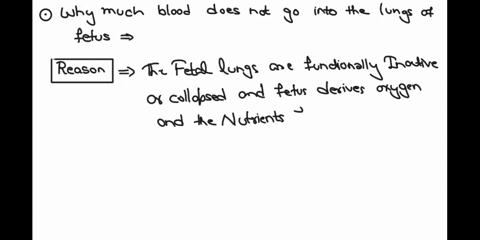 ⊙ Why much blood does not go into the lungs of
fetus ⇒
Reason ⇒ The Fetal lungs are functionally Inactive
or collapsed and fetus derives oxygen
and the Nutrients